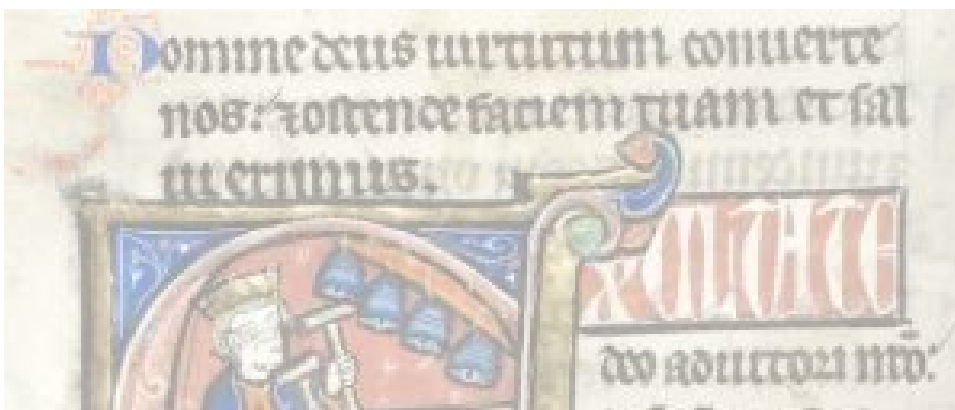 Domine deus uirtutum conuerte
nos: ⁊ ostende faciem tuam et sal
ui erimus.
EXULTATE
deo adiutori nr̄o: